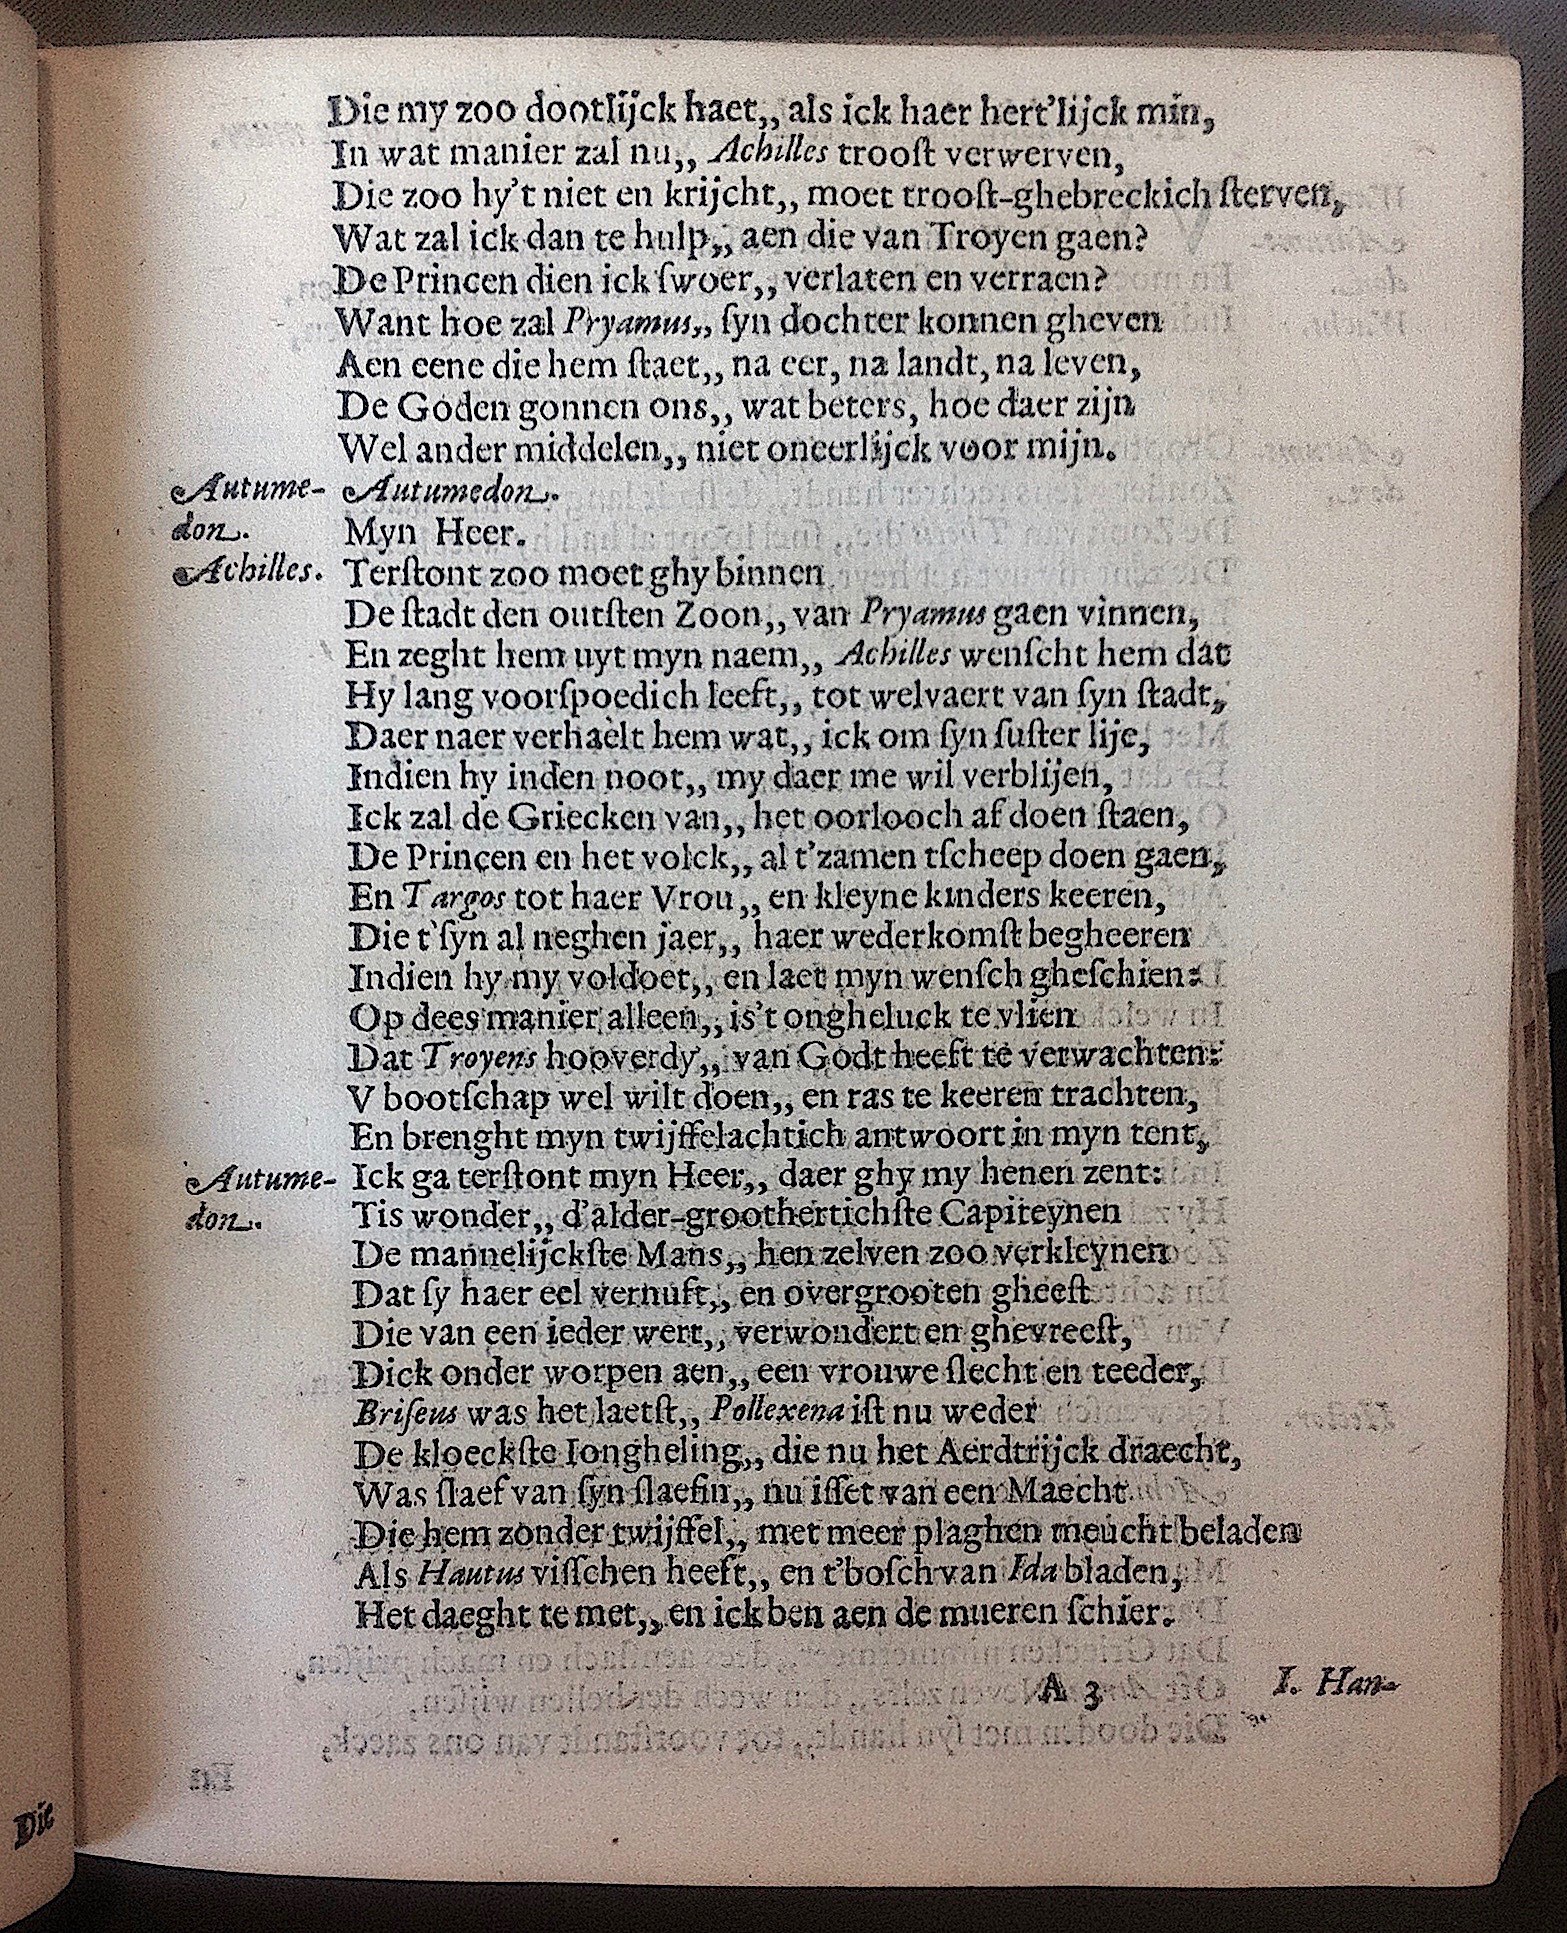 Die my zoo dootlijck haet,, als ick haer hert'lijck min,
In wat manier zal nu,, Achilles trooſt verwerven,
Die zoo hy't niet en krijcht,, moet trooſt-ghebreckich ſterven,
Wat zal ick dan te hulp,, aen die van Troyen gaen?
De Princen dien ick ſwoer,, verlaten en verraen?
Want hoe zal Pryamus,, ſyn dochter konnen gheven
Aen eene die hem ſtaet,, na eer, na landt, na leven,
De Goden gonnen ons,, wat beters, hoe daer zijn
Wel ander middelen,, niet oneerlijck voor mijn.
Autume- Autumedon.
don. Myn Heer.
Achilles. Terſtont zoo moet ghy binnen
De ſtadt den outſten Zoon,, van Pryamus gaen vinnen,
En zeght hem uyt myn naem,, Achilles wenſcht hem dat
Hy lang voorſpoedich leeft,, tot welvaert van ſyn ſtadt,
Daer naer verhaelt hem wat,, ick om ſyn ſuſter lije,
Indien hy inden noot,, my daer me wil verblijen,
Ick zal de Griecken van,, het oorlooch af doen ſtaen,
De Princen en het volck,, al t'zamen tſcheep doen gaen,
En Targos tot haer Vrou,, en kleyne kinders keeren,
Die t'ſyn al neghen jaer,, haer wederkomſt begheeren
Indien hy my voldoet,, en laet myn wenſch gheſchien:
Op dees manier alleen,, is't ongheluck te vlien
Dat Troyens hooverdy,, van Godt heeft te verwachten:
V bootſchap wel wilt doen,, en ras te keeren trachten,
En brenght myn twijffelachtich antwoort in myn tent,
Autume- Ick ga terſtont myn Heer,, daer ghy my henen zent:
don. Tis wonder,, d'alder-groothertichſte Capiteynen
De mannelijckſte Mans,, hen zelven zoo verkleynen
Dat ſy haer eel vernuft,, en overgrooten gheeſt
Die van een ieder wert,, verwondert en ghevreeſt,
Dick onder worpen aen,, een vrouwe ſlecht en teeder,
Briſeus was het laetſt,, Pollexena iſt nu weder
De kloeckſte Iongheling,, die nu het Aerdtrijck draecht,
Was ſlaef van ſyn ſlaefin,, nu iſſet van een Maecht
Die hem zonder twijffel,, met meer plaghen meucht beladen
Als Hautus viſſchen heeft,, en t'boſch van Ida bladen,
Het daeght te met,, en ick ben aen de mueren ſchier.
A 3 I. Han-
Die